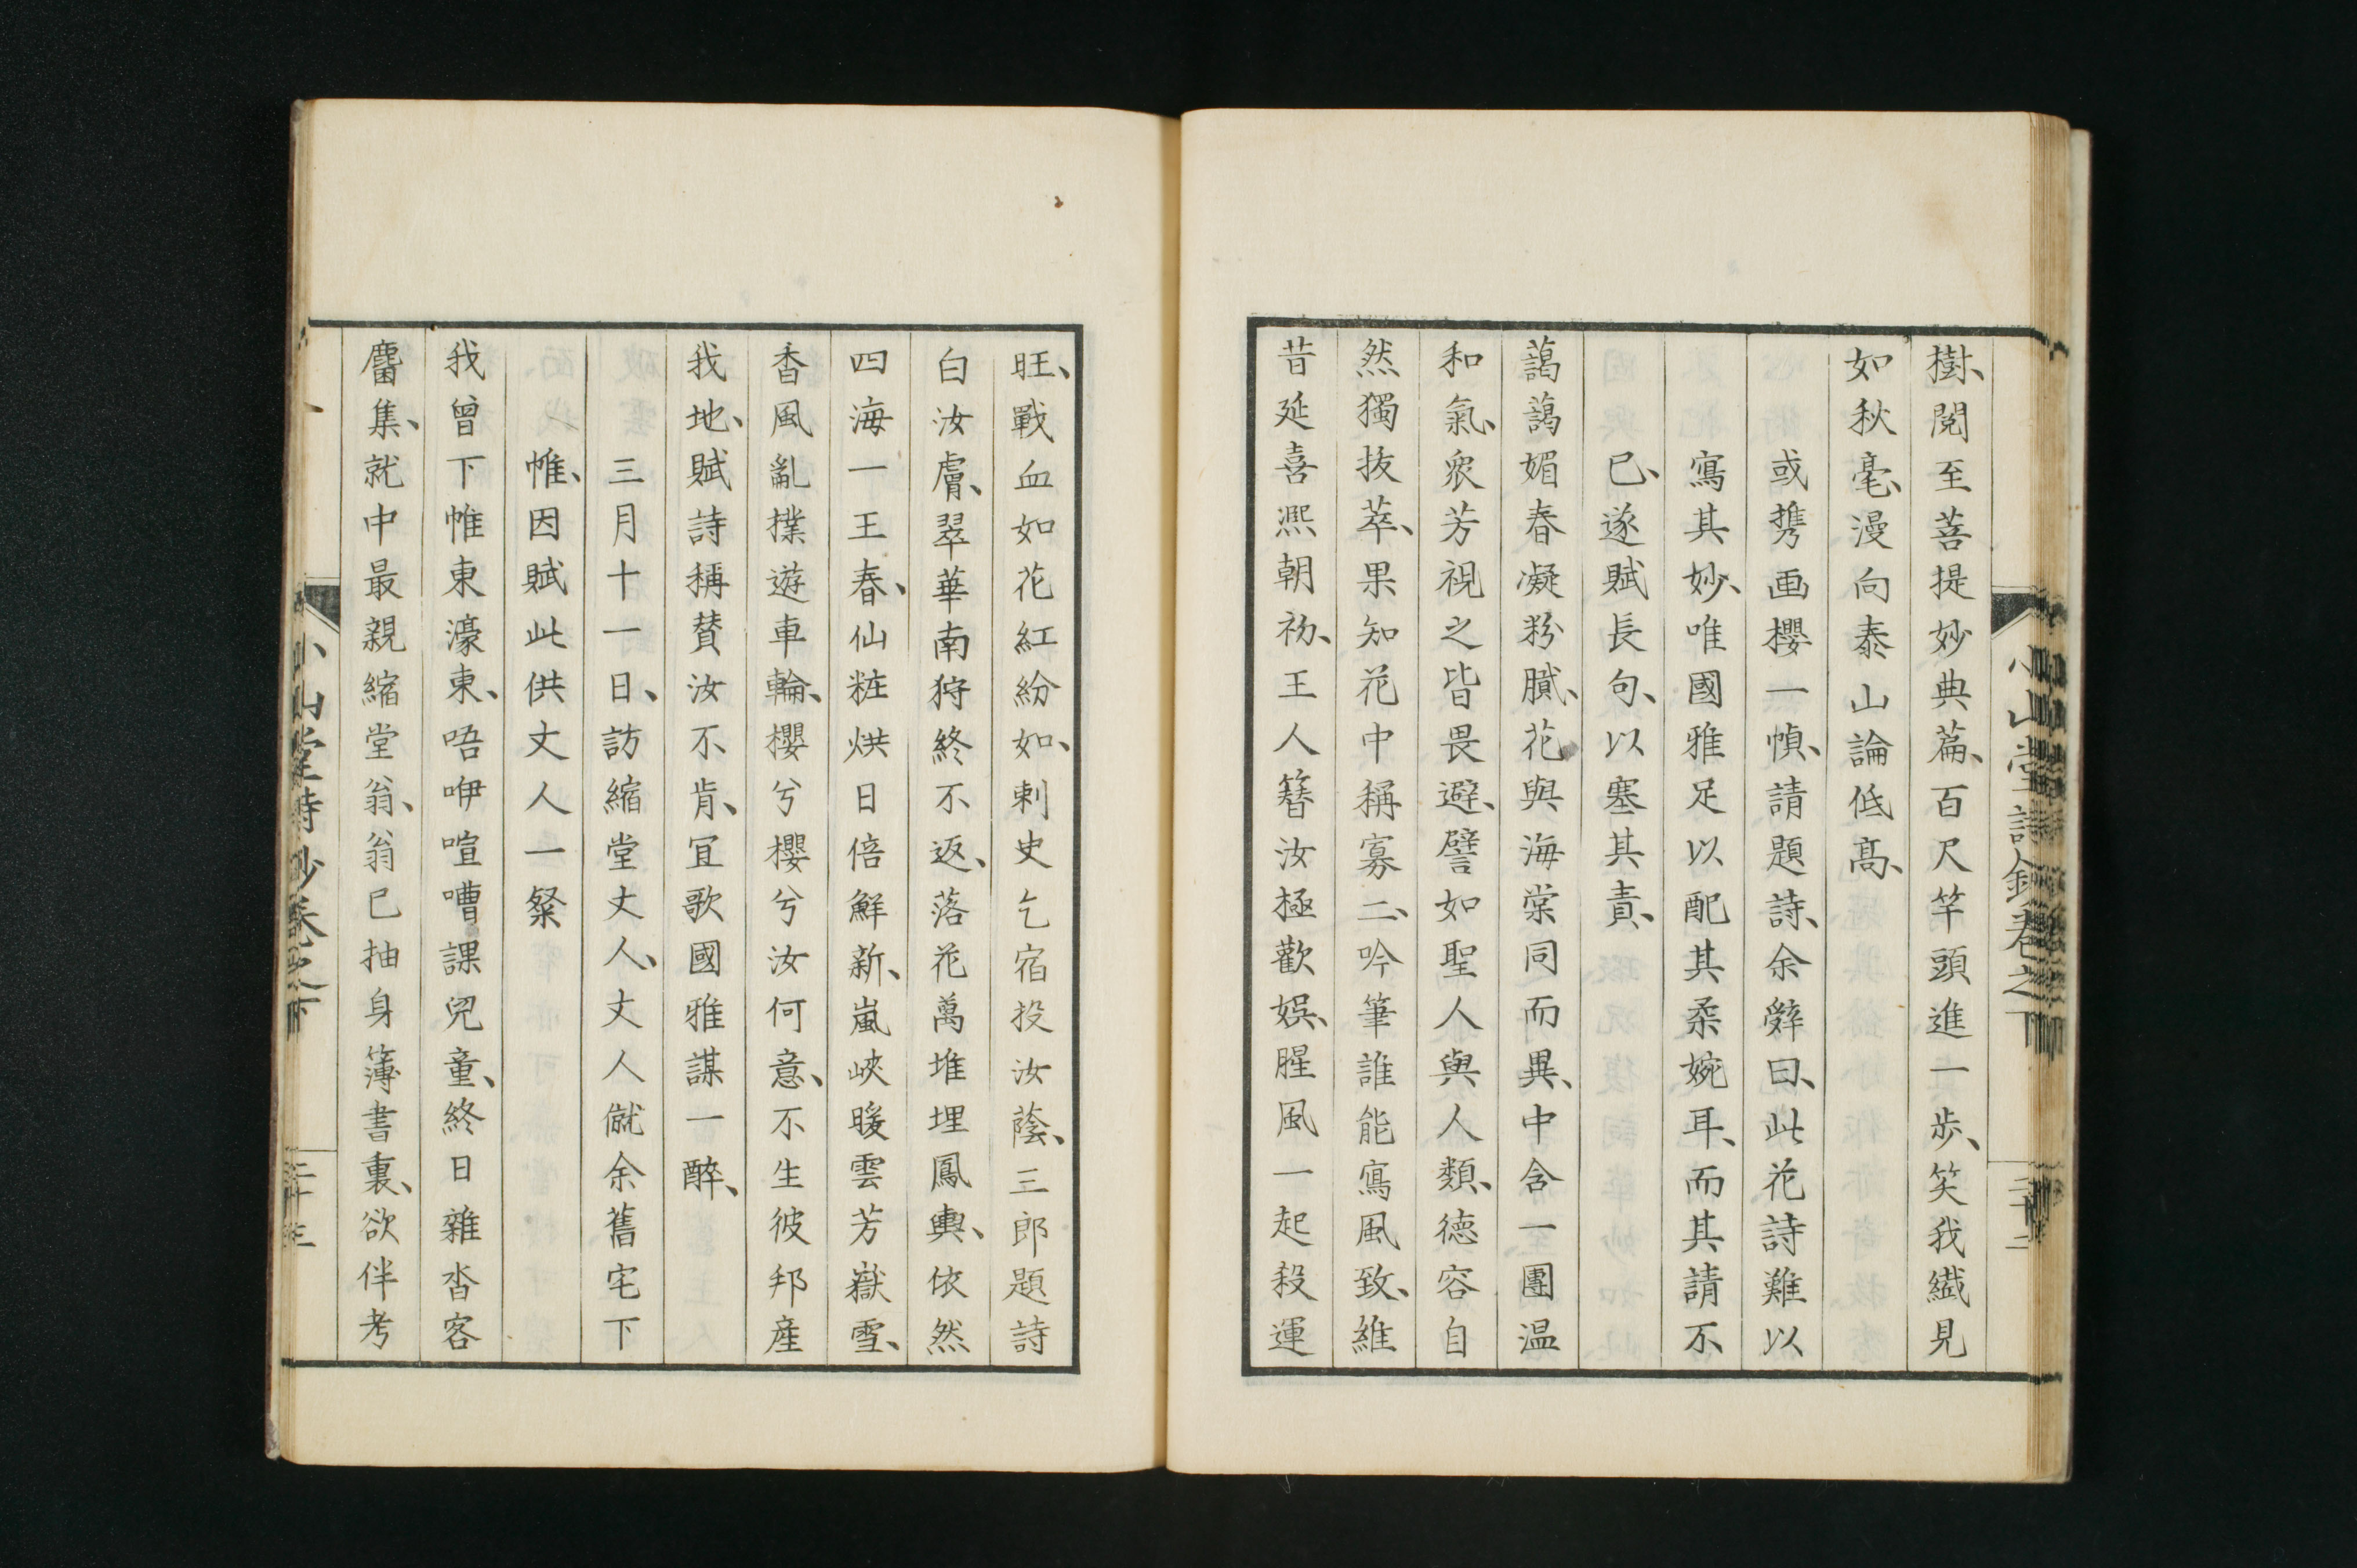 樹、閲至菩提妙典篇、百尺竿頭進一歩、笑我纖見
如秋毫、漫向泰山論低高、
或携画櫻一幀、請題詩、余辭曰、此花詩難以
寫其妙、唯國雅足以配其柔婉耳、而其請不
已、遂賦長句、以塞其責、
藹藹媚春凝粉膩、花與海棠同而異、中含一團温
和氣、衆芳視之皆畏避、譬如聖人與人類、徳容自
然獨抜萃、果知花中稱寡二、吟筆誰能寫風致、維
昔延喜熈朝初、王人簪汝極歡娯、腥風一起殺運
小山堂詩鈔卷之下
二十二
旺、戰血如花紅紛如、剌史乞宿投汝蔭、三郎題詩
白汝膚、翠華南狩終不返、落花萬堆埋鳳輿、依然
四海一王春、仙粧烘日倍鮮新、嵐峽暖雲芳嶽雪、
香風亂撲遊車輪、櫻兮櫻兮汝何意、不生彼邦産
我地、賦詩稱賛汝不肯、冝歌國雅謀一醉、
三月十一日、訪縮堂丈人、丈人僦余舊宅下
帷、因賦此供丈人一粲
我曾下帷東濠東、唔咿喧嘈課兒童、終日雜沓客
麕集、就中最親縮堂翁、翁已抽身簿書裏、欲伴考
小山堂詩鈔卷之下
二十三